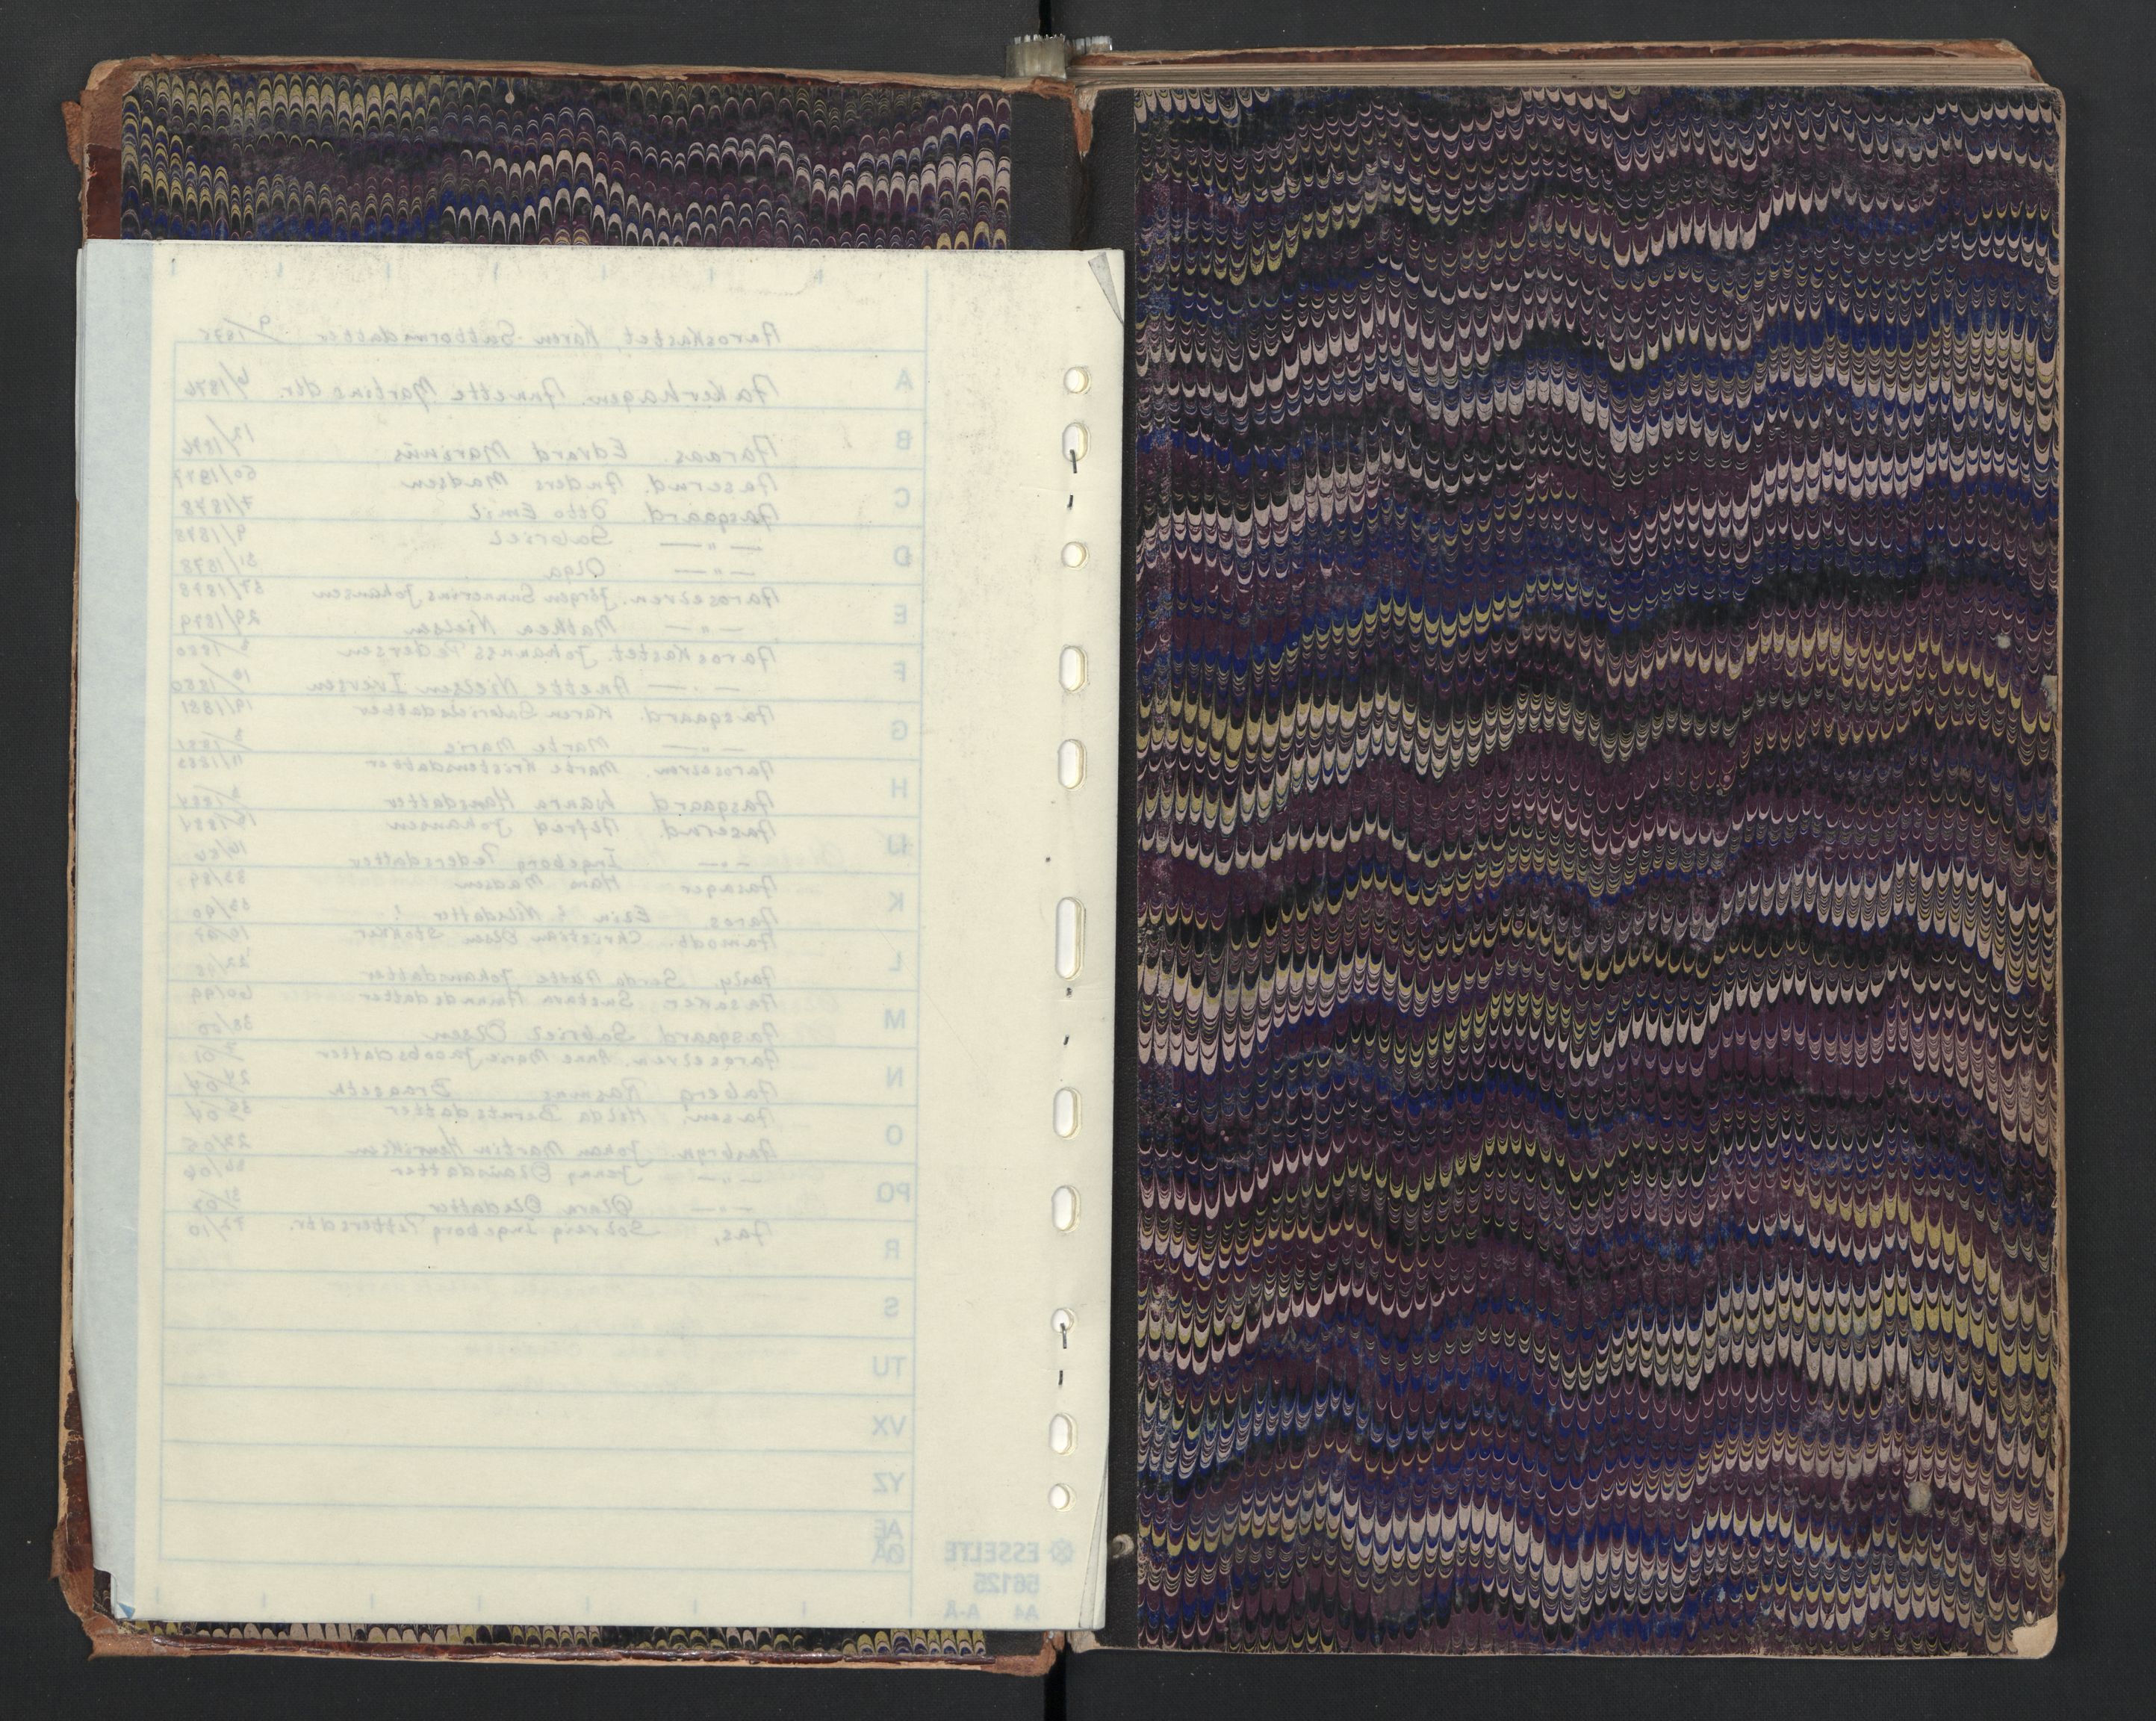 Aaroskastet, Karen Guttormsdatter 9/1875
A
Aakerhagen. Annette Martinsdtr. 4/1876
B
Aaraas. Edvard Marinius 12/1876
Aaserud. Anders Madsen 60/1877
C
Aasgaard. Otto Emil 7/1878
—"— Gabriel 9/1878
D
—"— Olga 31/1878
Aaroselven. Jörgen Johansen 57/1878
E
—"— Mathea Nielsen 29/1879
Aaroskastet. Johannes Pedersen 1880
F
—"— Anette Nielsen Iversen 10/1880
Aasgaard. Karen Gabrielsdatter 19/1881
G
—"— Marte Marie 3/1881
Marte Kristensdatter 11/1883
H
Aasgaard Laura Hansdatter 1884
IJ
Aaserud. Alfred Johansen 1884
—"— Ingeborg Pedersdatter 16/84
Aasager Hans Madsen 33/89
K
Aaros. Elin ? Nilsdatter ! 33/90
Aamodt. Christian Olsen Stokker
L
Aasly. Gerda Johansdatter
Aasaker. Gustava Amundsdatter 60/99
M
Aasgaard Gabriel Olsen 38/00
Aaroselven. Anne Marie Jacobsdatter 01
N
Aaberg Rasmus Braaseth 24/04
Aasen. Helda Berntsdatter 39/04
O
Aasbryn Johan Martin Henriksen 22/05
—"— Jenny Olausdatter 36/06
PQ
—"— Olara Olsdatter 31/07
Aas, Solveig Ingeborg Pettersdtr. 77/10
R
S
TU
VX
YZ
ÆÄ
ØÅ
ESSELTE
56125
A4 A-Å